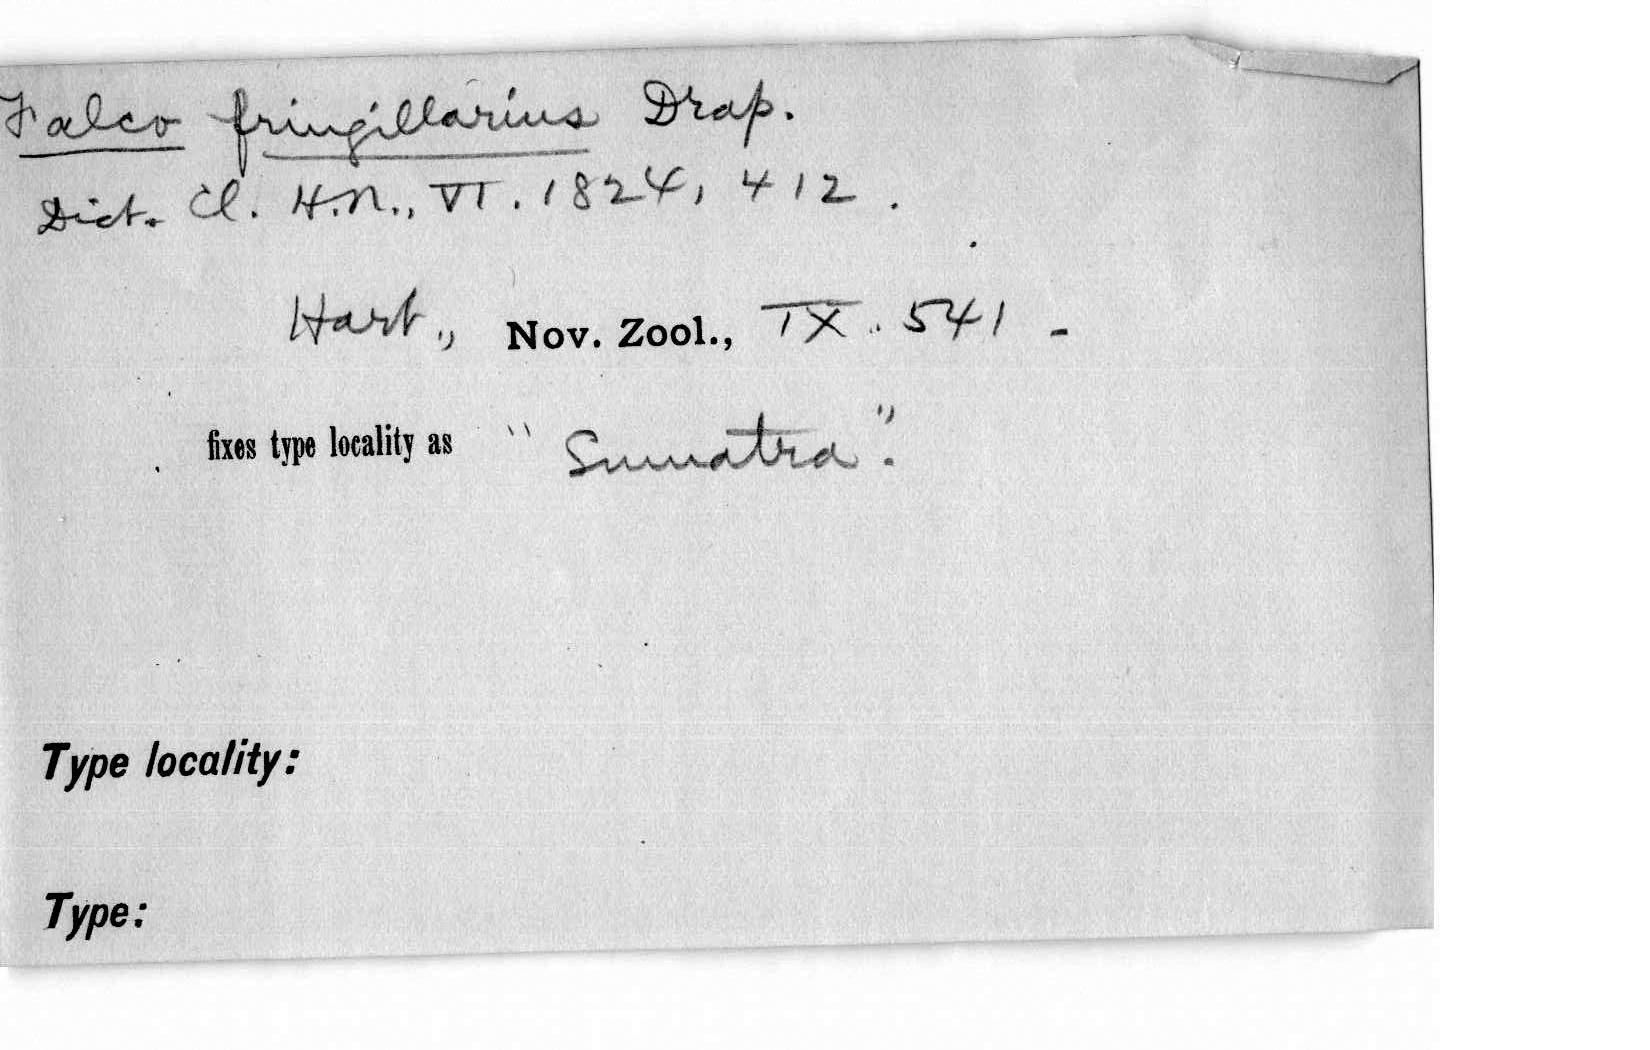 Falco fringillarius Drap.
Dict. Cl. H.N., VI. 1824, 412.
Hart., Nov. Zool., IX. 541 -
fixes type locality as "Sumatra".
Type locality:
Type: